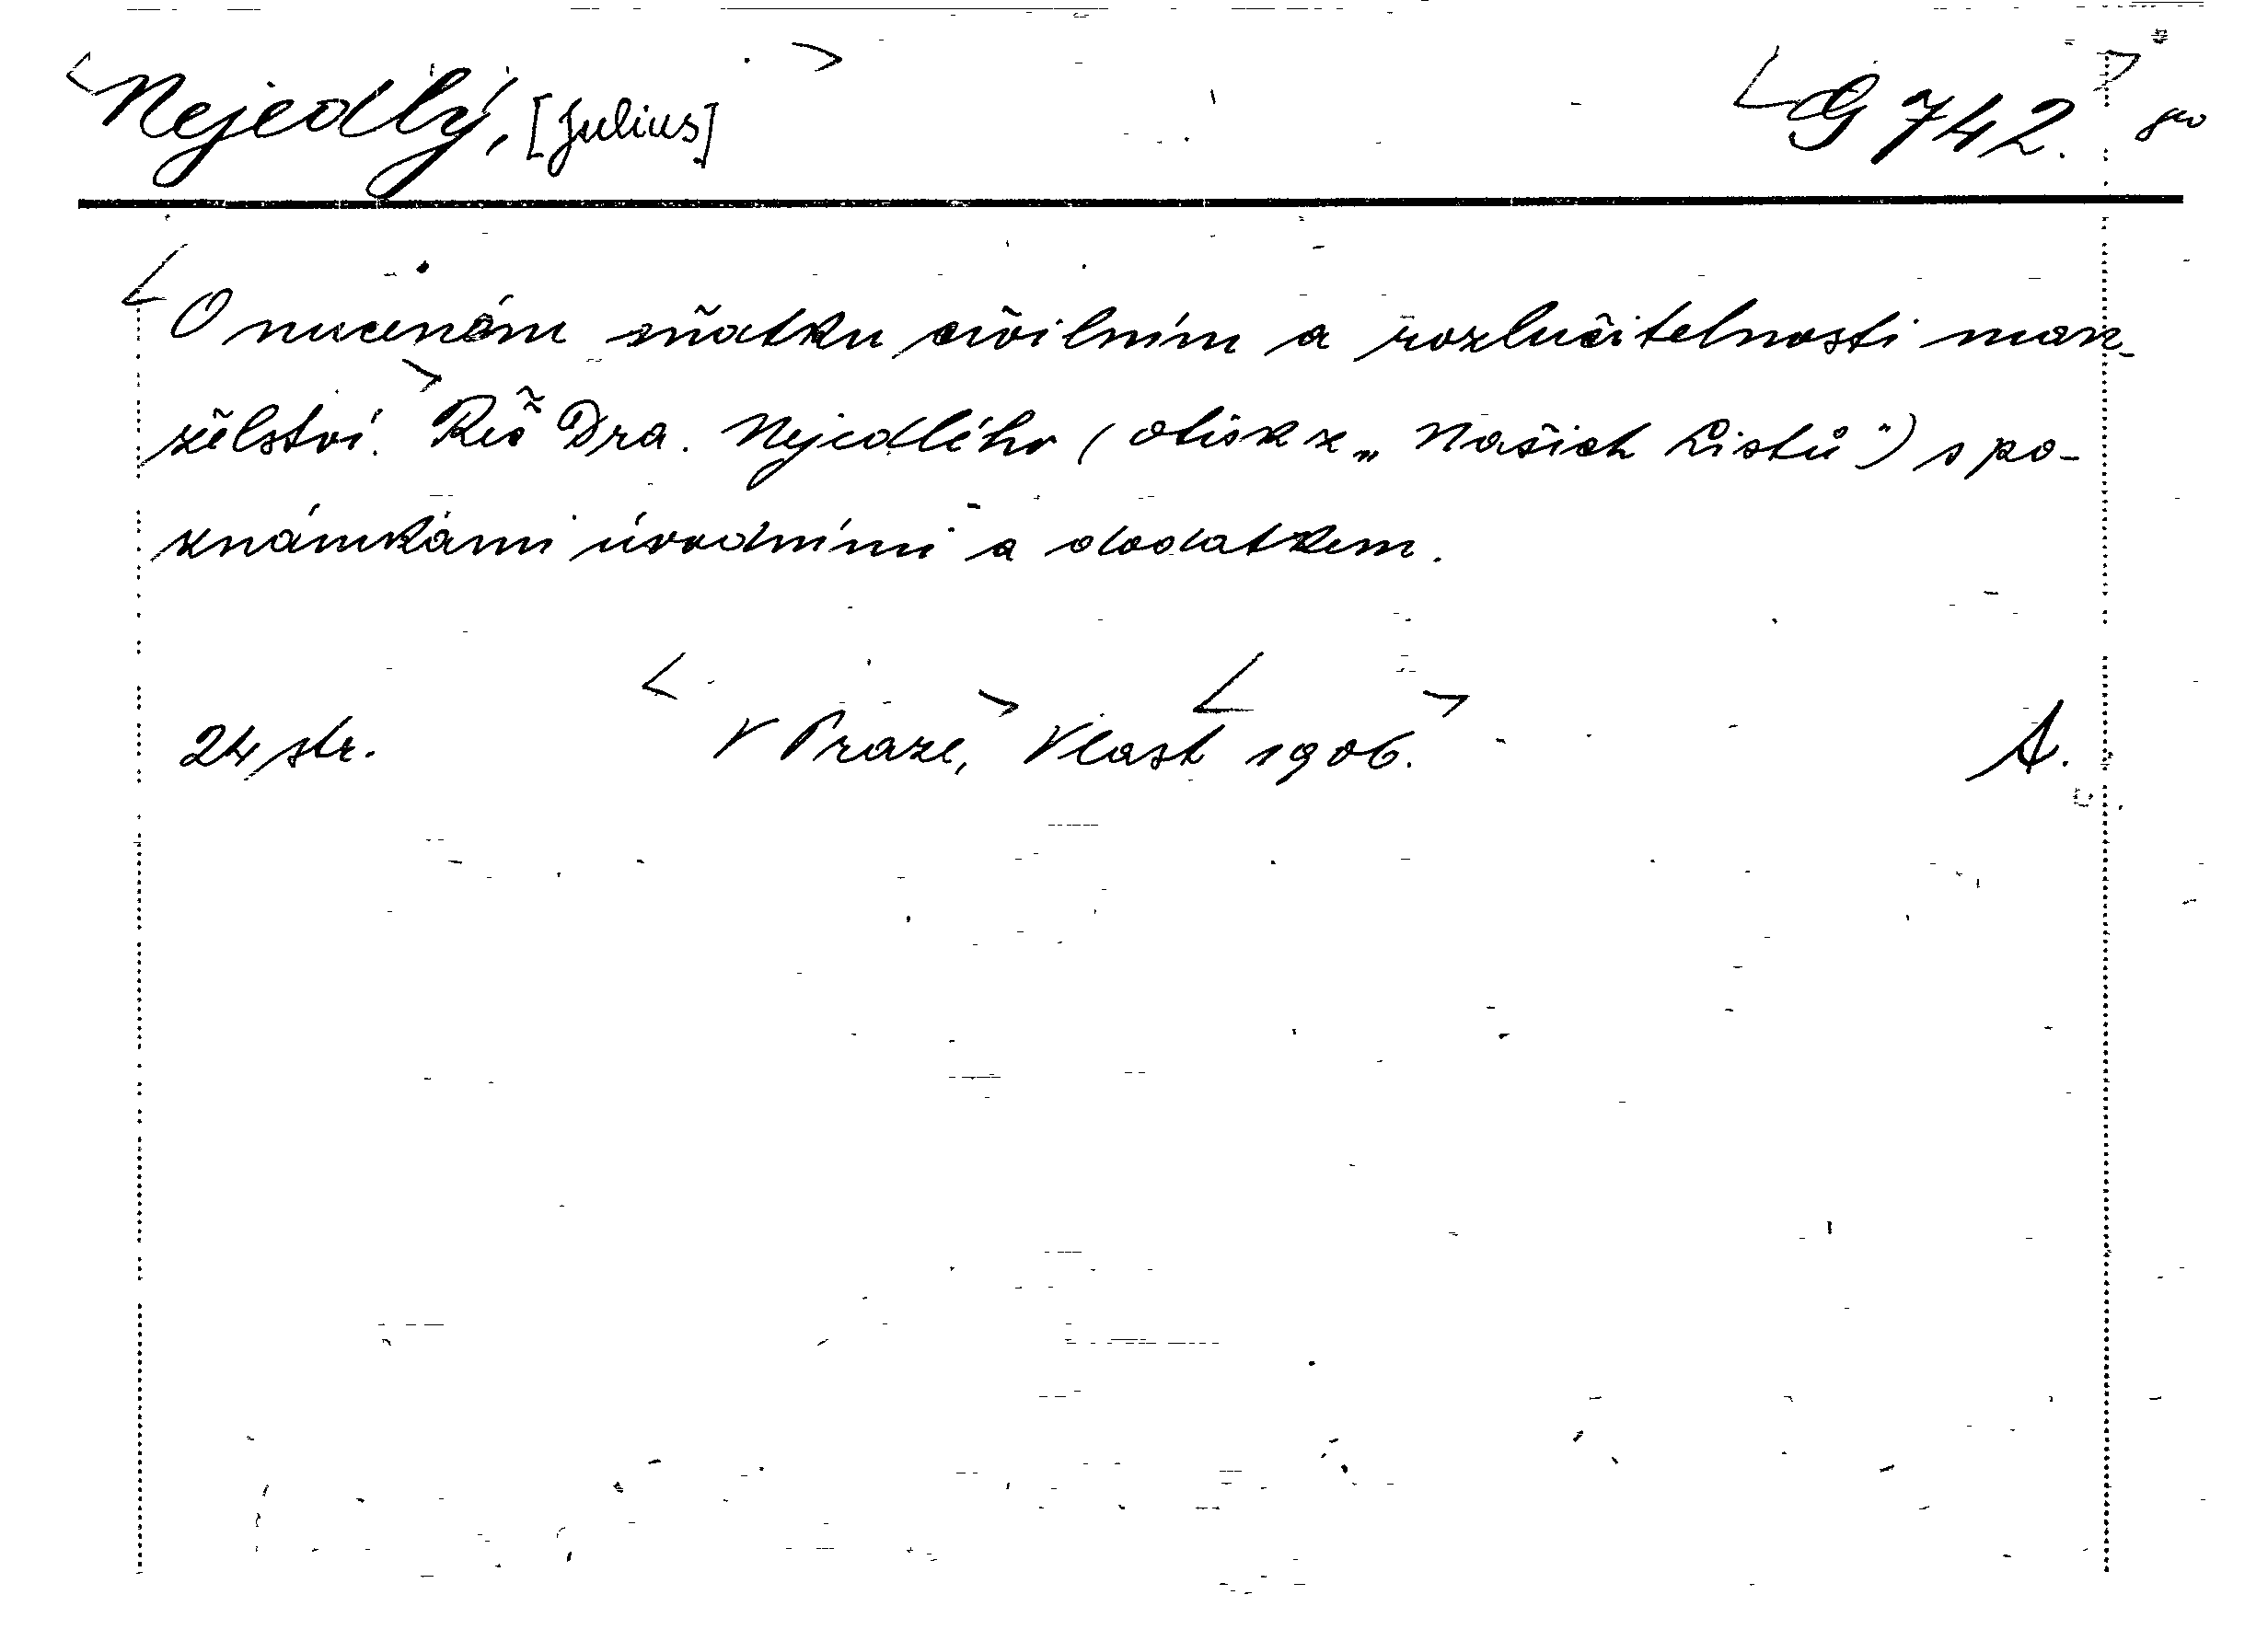 Nejedlý, [Julius] G 742.
O nuceném sňatku civilním a rozlučitelnosti man-
želství. Řeč Dra. Nejedlého (otisk z „Našich Listů") s po-
známkami úvodními a dodatkem.
24 str. V Praze, Vlast 1906. A.